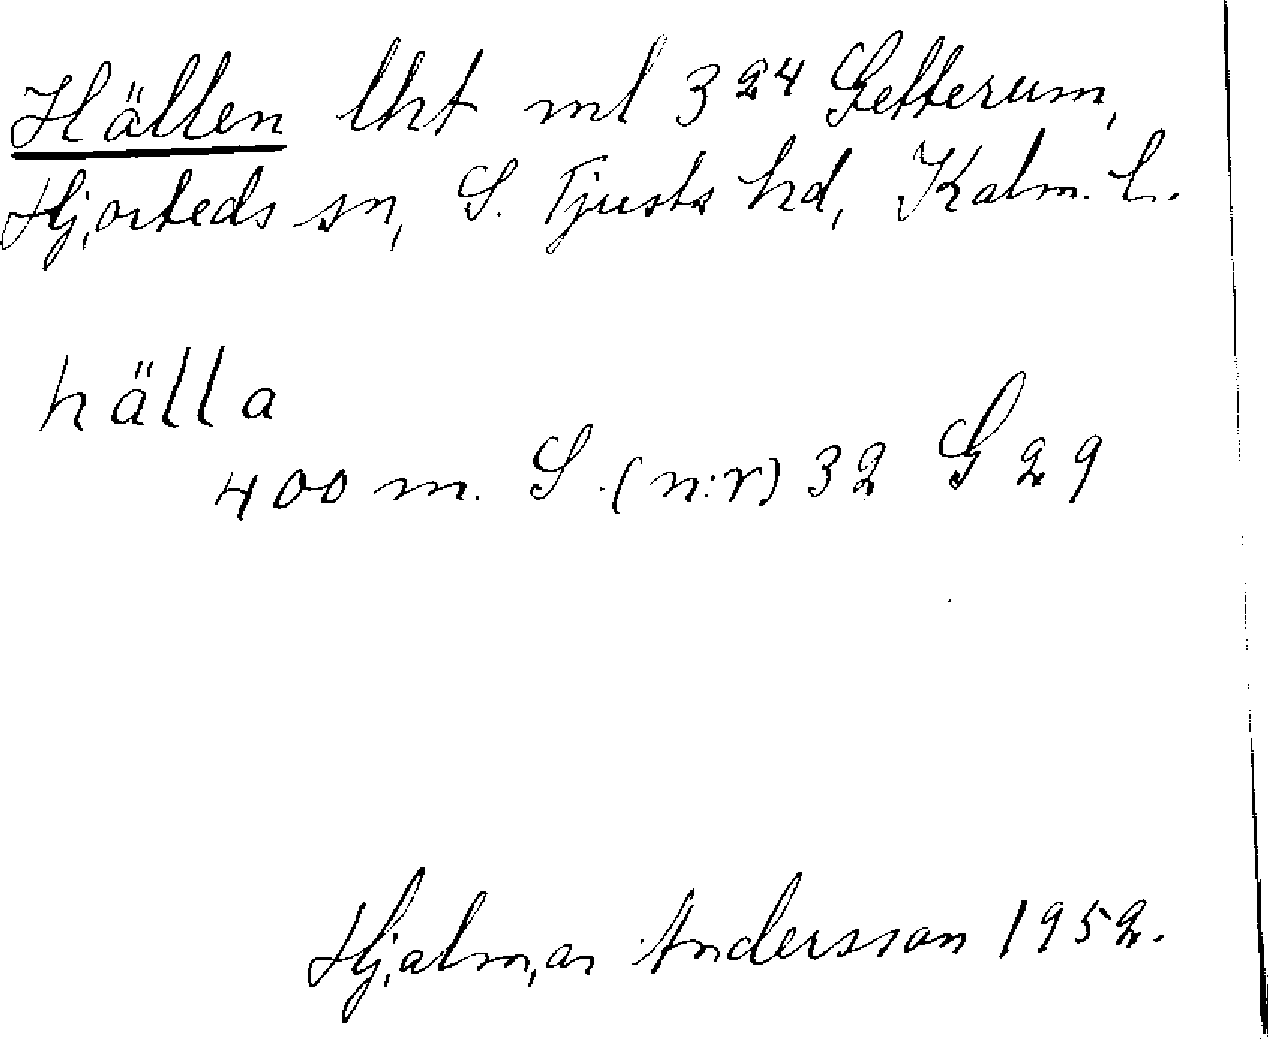 Hällen lht ml 3²⁴ Getterum,
Hjorteds sn, S. Tjusts hd, Kalm. l.
hälla
400 m. S. (n:r) 32 G 29
Hjalmar Andersson 1952.